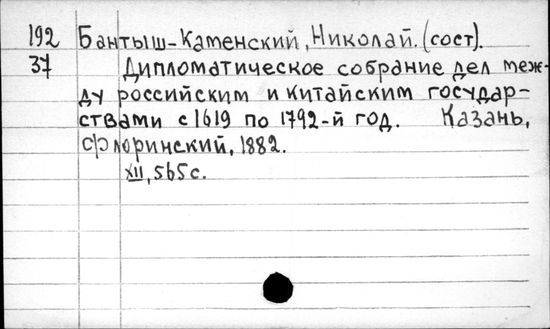 192 Бантыш-Каменский, Николай. (сост).
37 Дипломатическое собрание дел меж-
ду российским и китайским государ-
ствами с 1619 по 1792-й год. Казань,
Флоринский, 1882.
XII, 565 с.